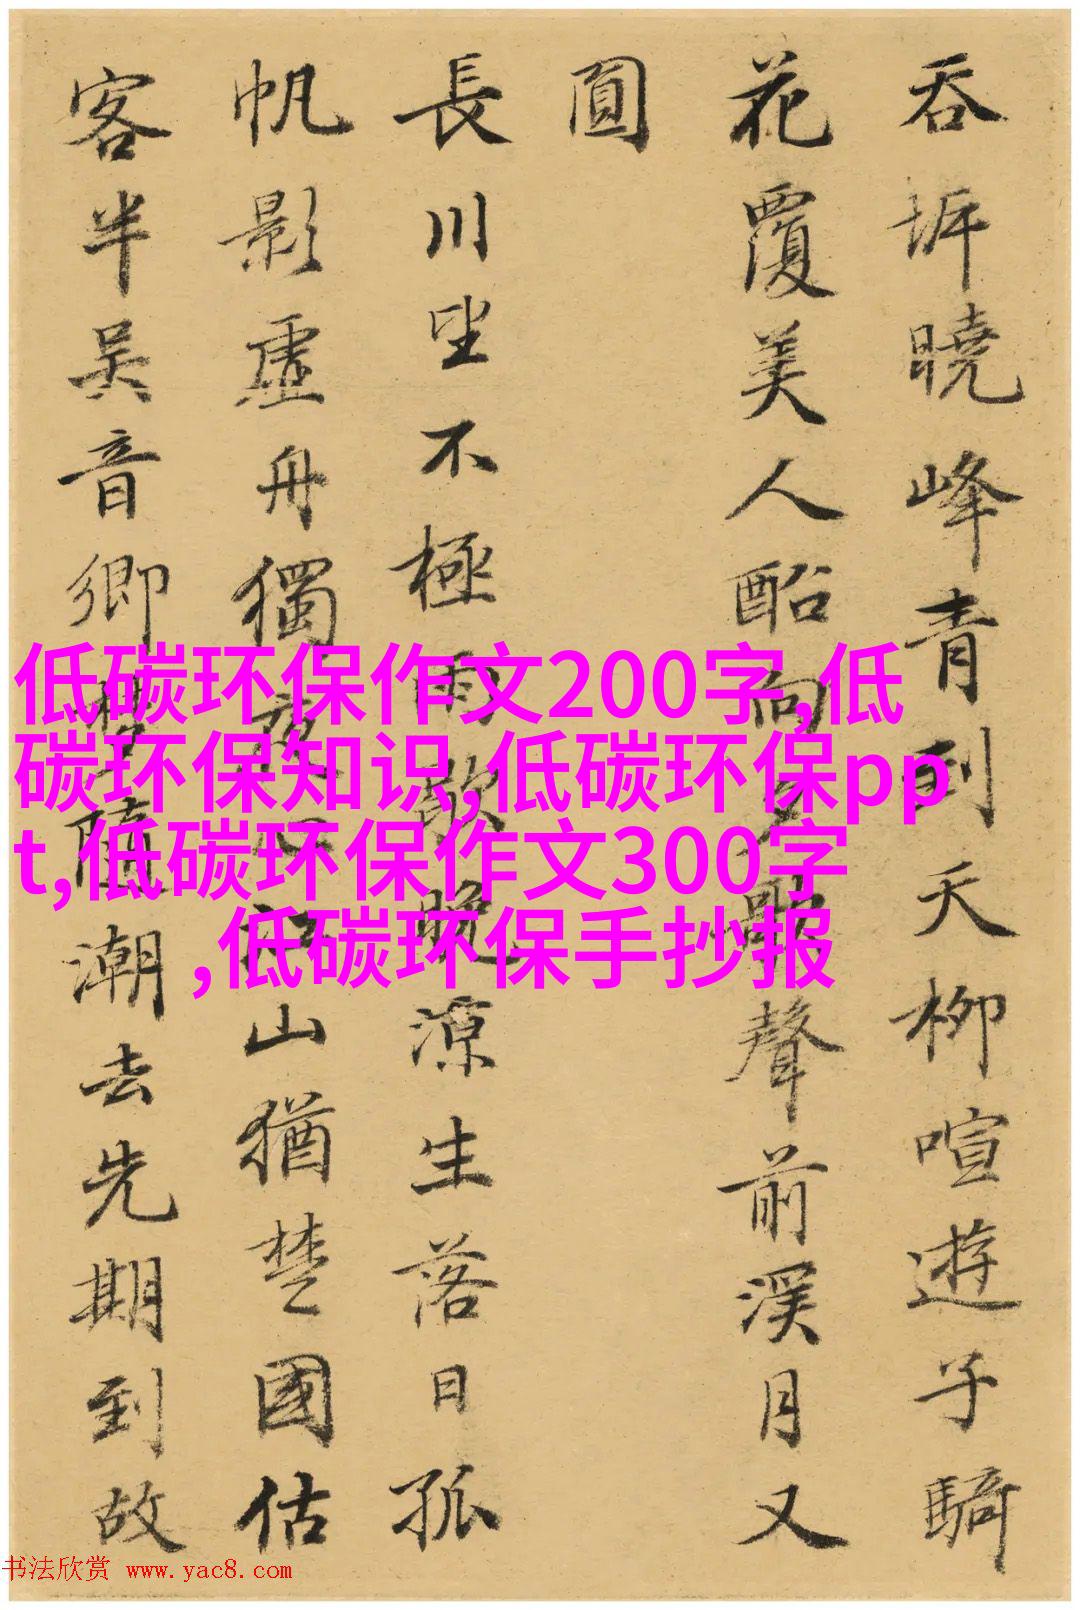 吞坼曉峰青到天柳喧遊子騎
花覆美人船向夕歌聲前溪月又
圓
長川坐不極雨歇晚涼生落日孤
帆影虛舟獨夜心江山猶楚國估
客半吳音鄉夢隨潮去先期到故
低碳环保作文200字,低
碳环保知识,低碳环保pp
t,低碳环保作文300字
,低碳环保手抄报
书法欣赏 www.yac8.com